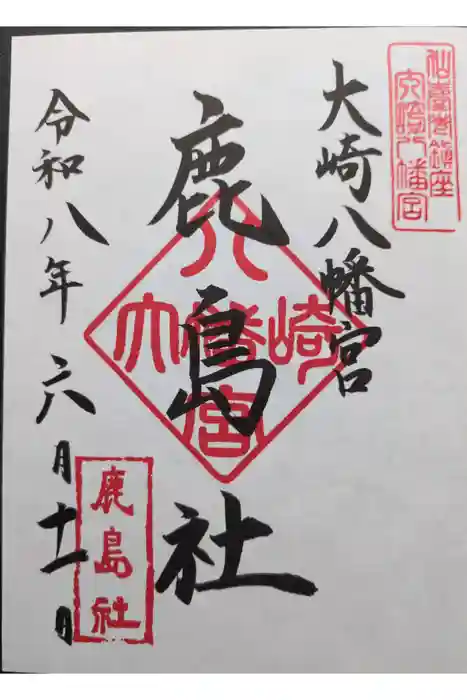 仙臺市鎮座
大崎八幡宮
大崎八幡宮
鹿島社
八
大幡崎
宮
令和八年六月十一日
鹿島社